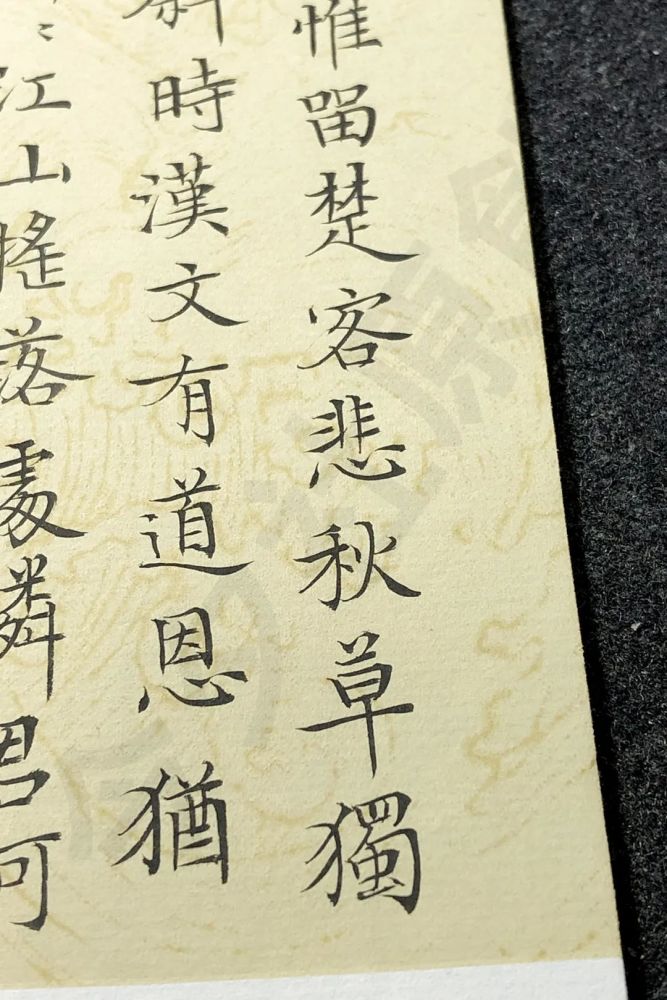 惟留楚客悲秋草獨
斜時漢文有道恩猶
江山搖落處憐君何